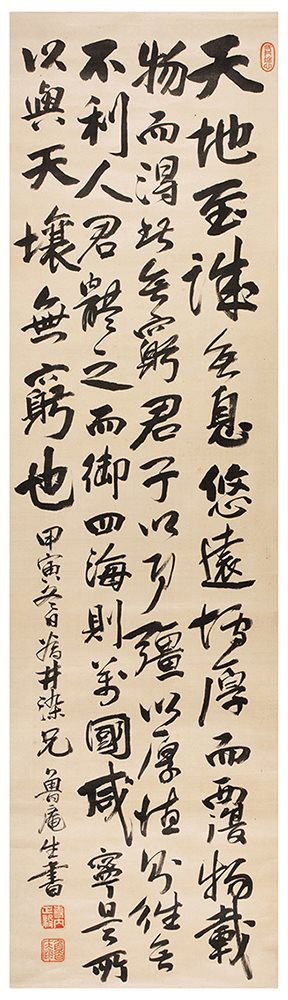 天地至誠無息悠遠博厚而覆物載
物而得此無窮君子以自彊以厚往無
不利人君體之而御四海則萬國咸寧是所
以與天壤無窮也
甲寅冬日為井染兄 魯庵生書